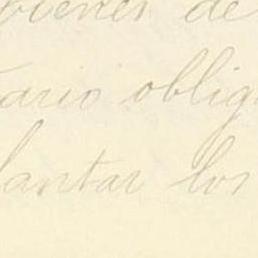 bienes de
tario oblig
lantar los